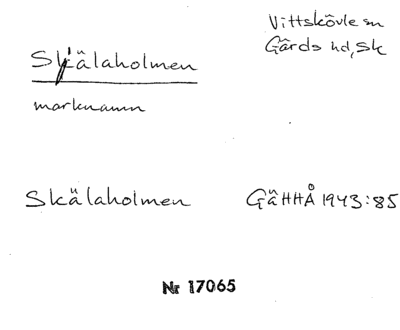 Vittskövle sn
Gärds hd, Sk
Skälaholmen
marknamn
Skälaholmen GäHHÅ 1943:85
Nr 17065